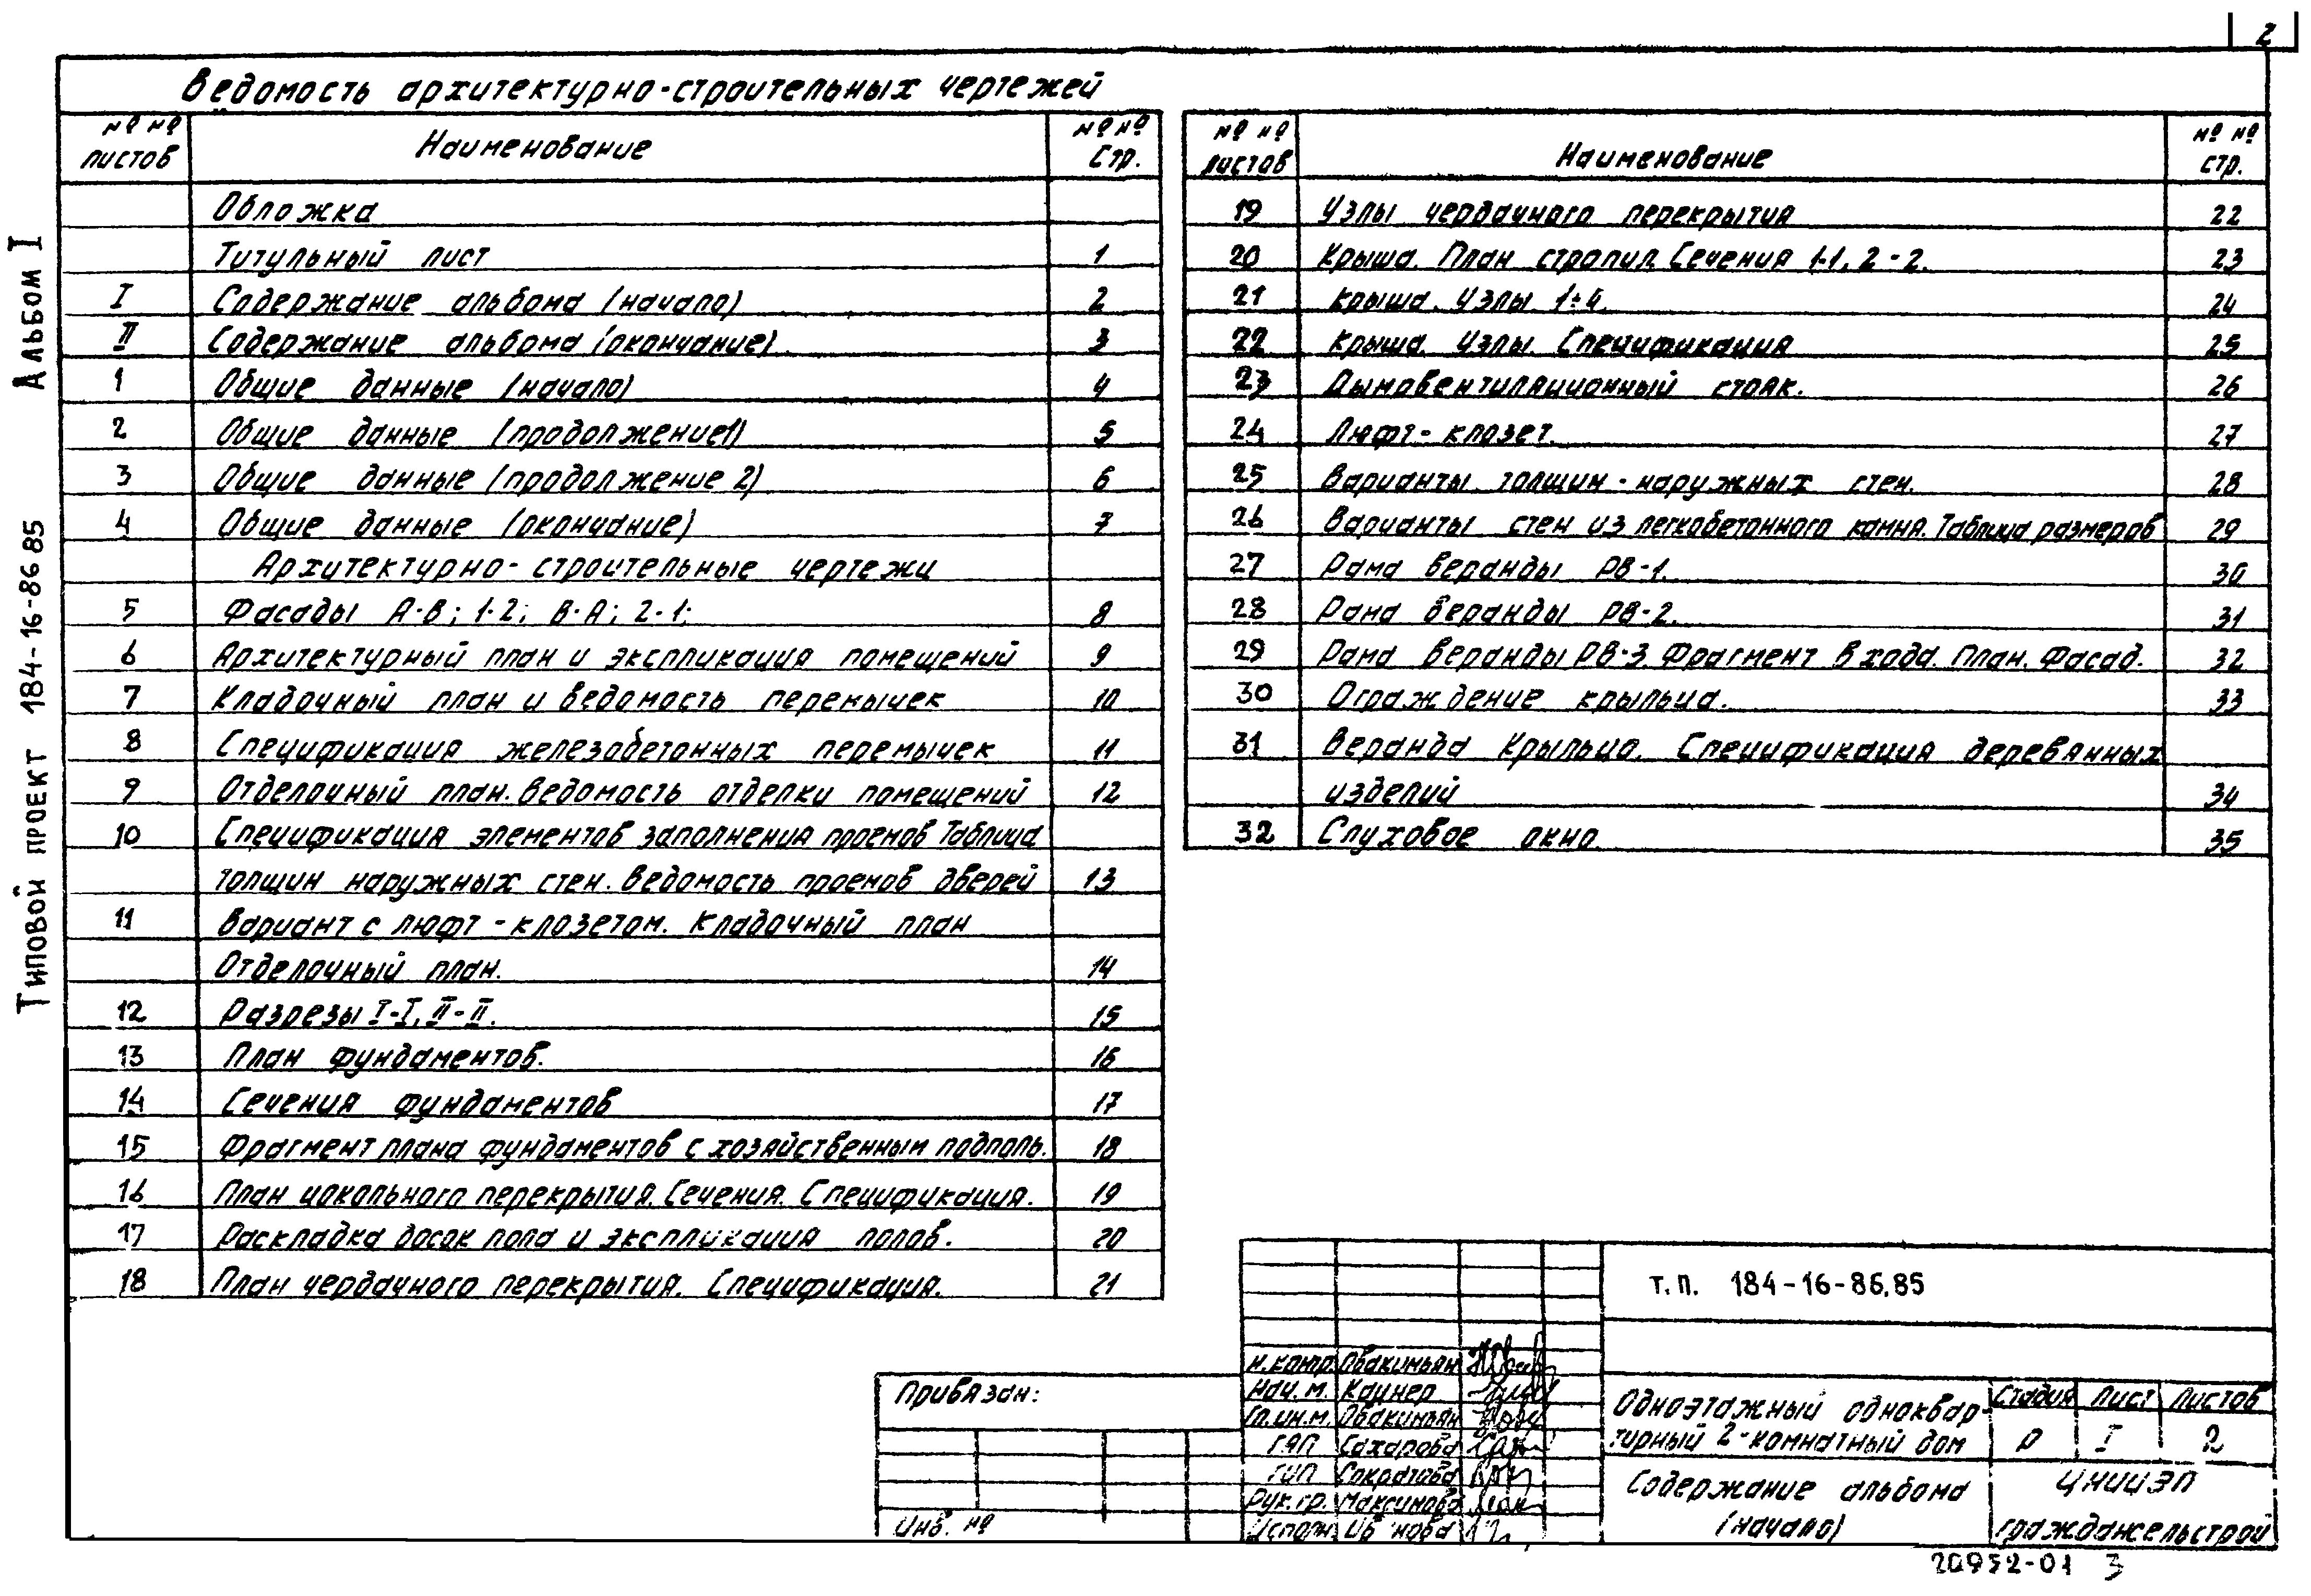 2
Ведомость архитектурно-строительных чертежей
№№ листов Наименование №№ стр.
Обложка
Титульный лист 1
I Содержание альбома (начало) 2
II Содержание альбома (окончание). 3
1 Общие данные (начало) 4
2 Общие данные (продолжение1) 5
3 Общие данные (продолжение 2) 6
4 Общие данные (окончание) 7
Архитектурно-строительные чертежи
5 Фасады А-В; 1-2; В-А; 2-1; 8
6 Архитектурный план и экспликация помещений 9
7 Кладочный план и ведомость перемычек 10
8 Спецификация железобетонных перемычек 11
9 Отделочный план. Ведомость отделки помещений 12
10 Спецификация элементов заполнения проемов Таблица
толщин наружных стен. Ведомость проемов дверей 13
11 Вариант с люфт-клозетом. Кладочный план
Отделочный план. 14
12 Разрезы I-I, II-II. 15
13 План фундаментов. 16
14 Сечения фундаментов 17
15 Фрагмент плана фундаментов с хозяйственным подполь. 18
16 План цокольного перекрытия. Сечения. Спецификация. 19
17 Раскладка досок пола и экспликация полов. 20
18 План чердачного перекрытия. Спецификация. 21
№№ листов Наименование №№ стр.
19 Узлы чердачного перекрытия 22
20 Крыша. План стропил. Сечения 1-1, 2-2. 23
21 Крыша. Узлы 1÷4. 24
22 Крыша. Узлы. Спецификация 25
23 Дымовентиляционный стояк. 26
24 Люфт-клозет. 27
25 Варианты толщин-наружных стен. 28
26 Варианты стен из легкобетонного камня. Таблица размеров 29
27 Рама веранды РВ-1. 30
28 Рама веранды РВ-2. 31
29 Рама веранды РВ-3 Фрагмент входа. План. Фасад. 32
30 Ограждение крыльца. 33
31 Веранда Крыльцо. Спецификация деревянных
изделий 34
32 Слуховое окно. 35
Альбом I
Типовой проект 184-16-86 85
т.п. 184-16-86.85
Привязан:
Инв. №
Н.контр. Овакимьян
Нач.м. Каунер
Гл.ин.м. Овакимьян
ГАП Сахарова
ГИП Сократова
Рук.гр. Максимова
Исполн.
Одноэтажный одноквар-
тирный 2-комнатный дом
Стадия Лист Листов
Р I 2
Содержание альбома
(начало)
ЦНИИЭП
граждансельстрой
20952-01 3